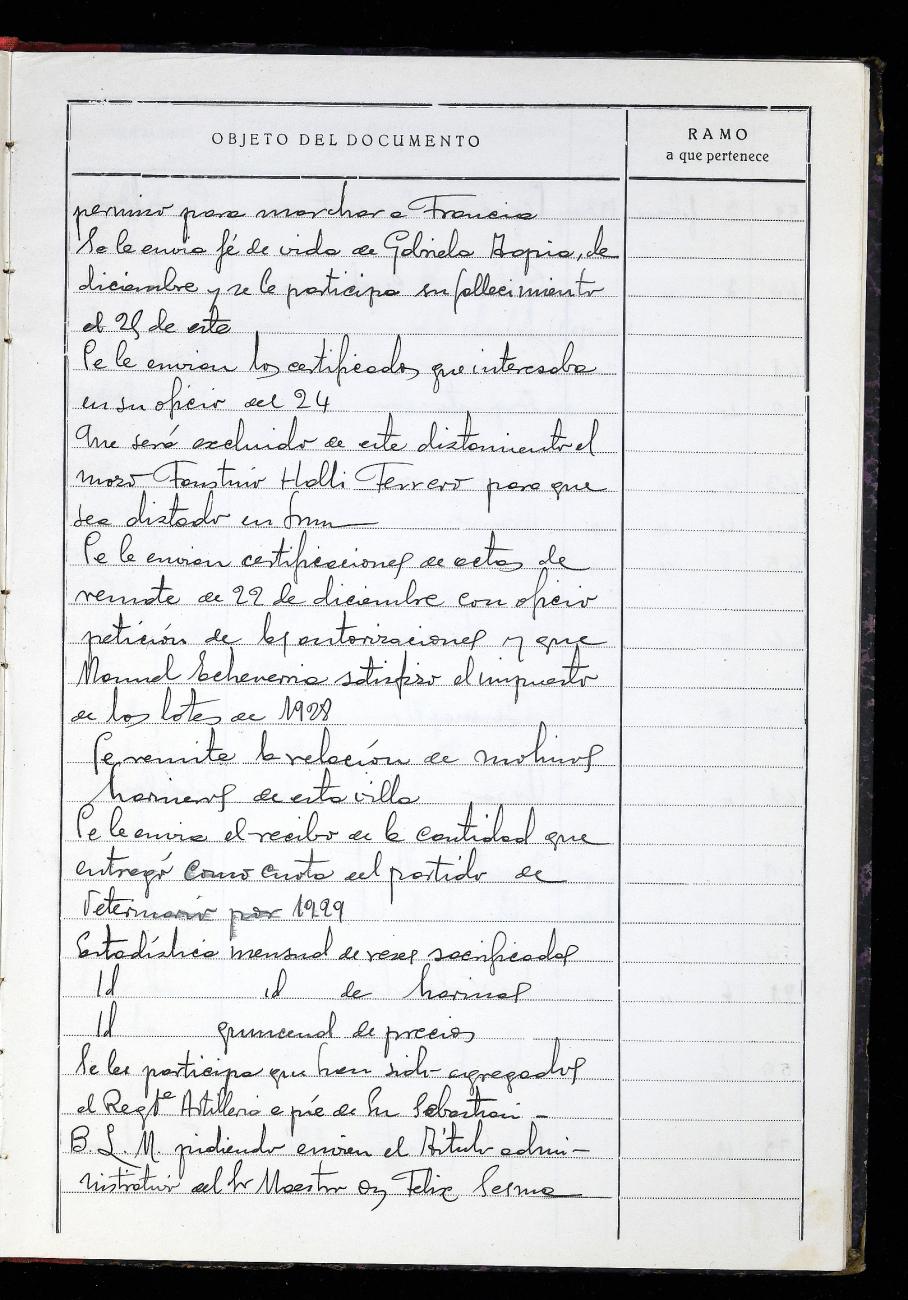 OBJETO DEL DOCUMENTO
RAMO
a que pertenece
permiso para marchar a Francia
Se le envia fé de vida de Gabriela Tapia, de
diciembre y se le participa su fallecimiento
el 25 de este
Se le envian los certificados que interesaba
en su oficio del 24
Que será excluido de este alistamiento el
mozo Faustino Halli Ferrero para que
sea alistado en
Se le envian certificaciones de actas de
remate de 22 de diciembre con oficio
petición de las autorizaciones y que
Manuel Echeverria satisfizo el impuesto
de los lotes de 1928
Se remite la relación de molinos
harineros de esta villa
Se le envia el recibo de la cantidad que
entregó como cuota del partido de
Veterinario por 1929
Estadística mensual de reses sacrificadas
Id id de harinas
Id quincenal de precios
Se les participa que han sido agregados
al Regto Artilleria a pié de Sn Sebastian -
B. L. M. pidiendo envien el Título admi-
nistrativo del Sr Maestro Dn Felix Sesma